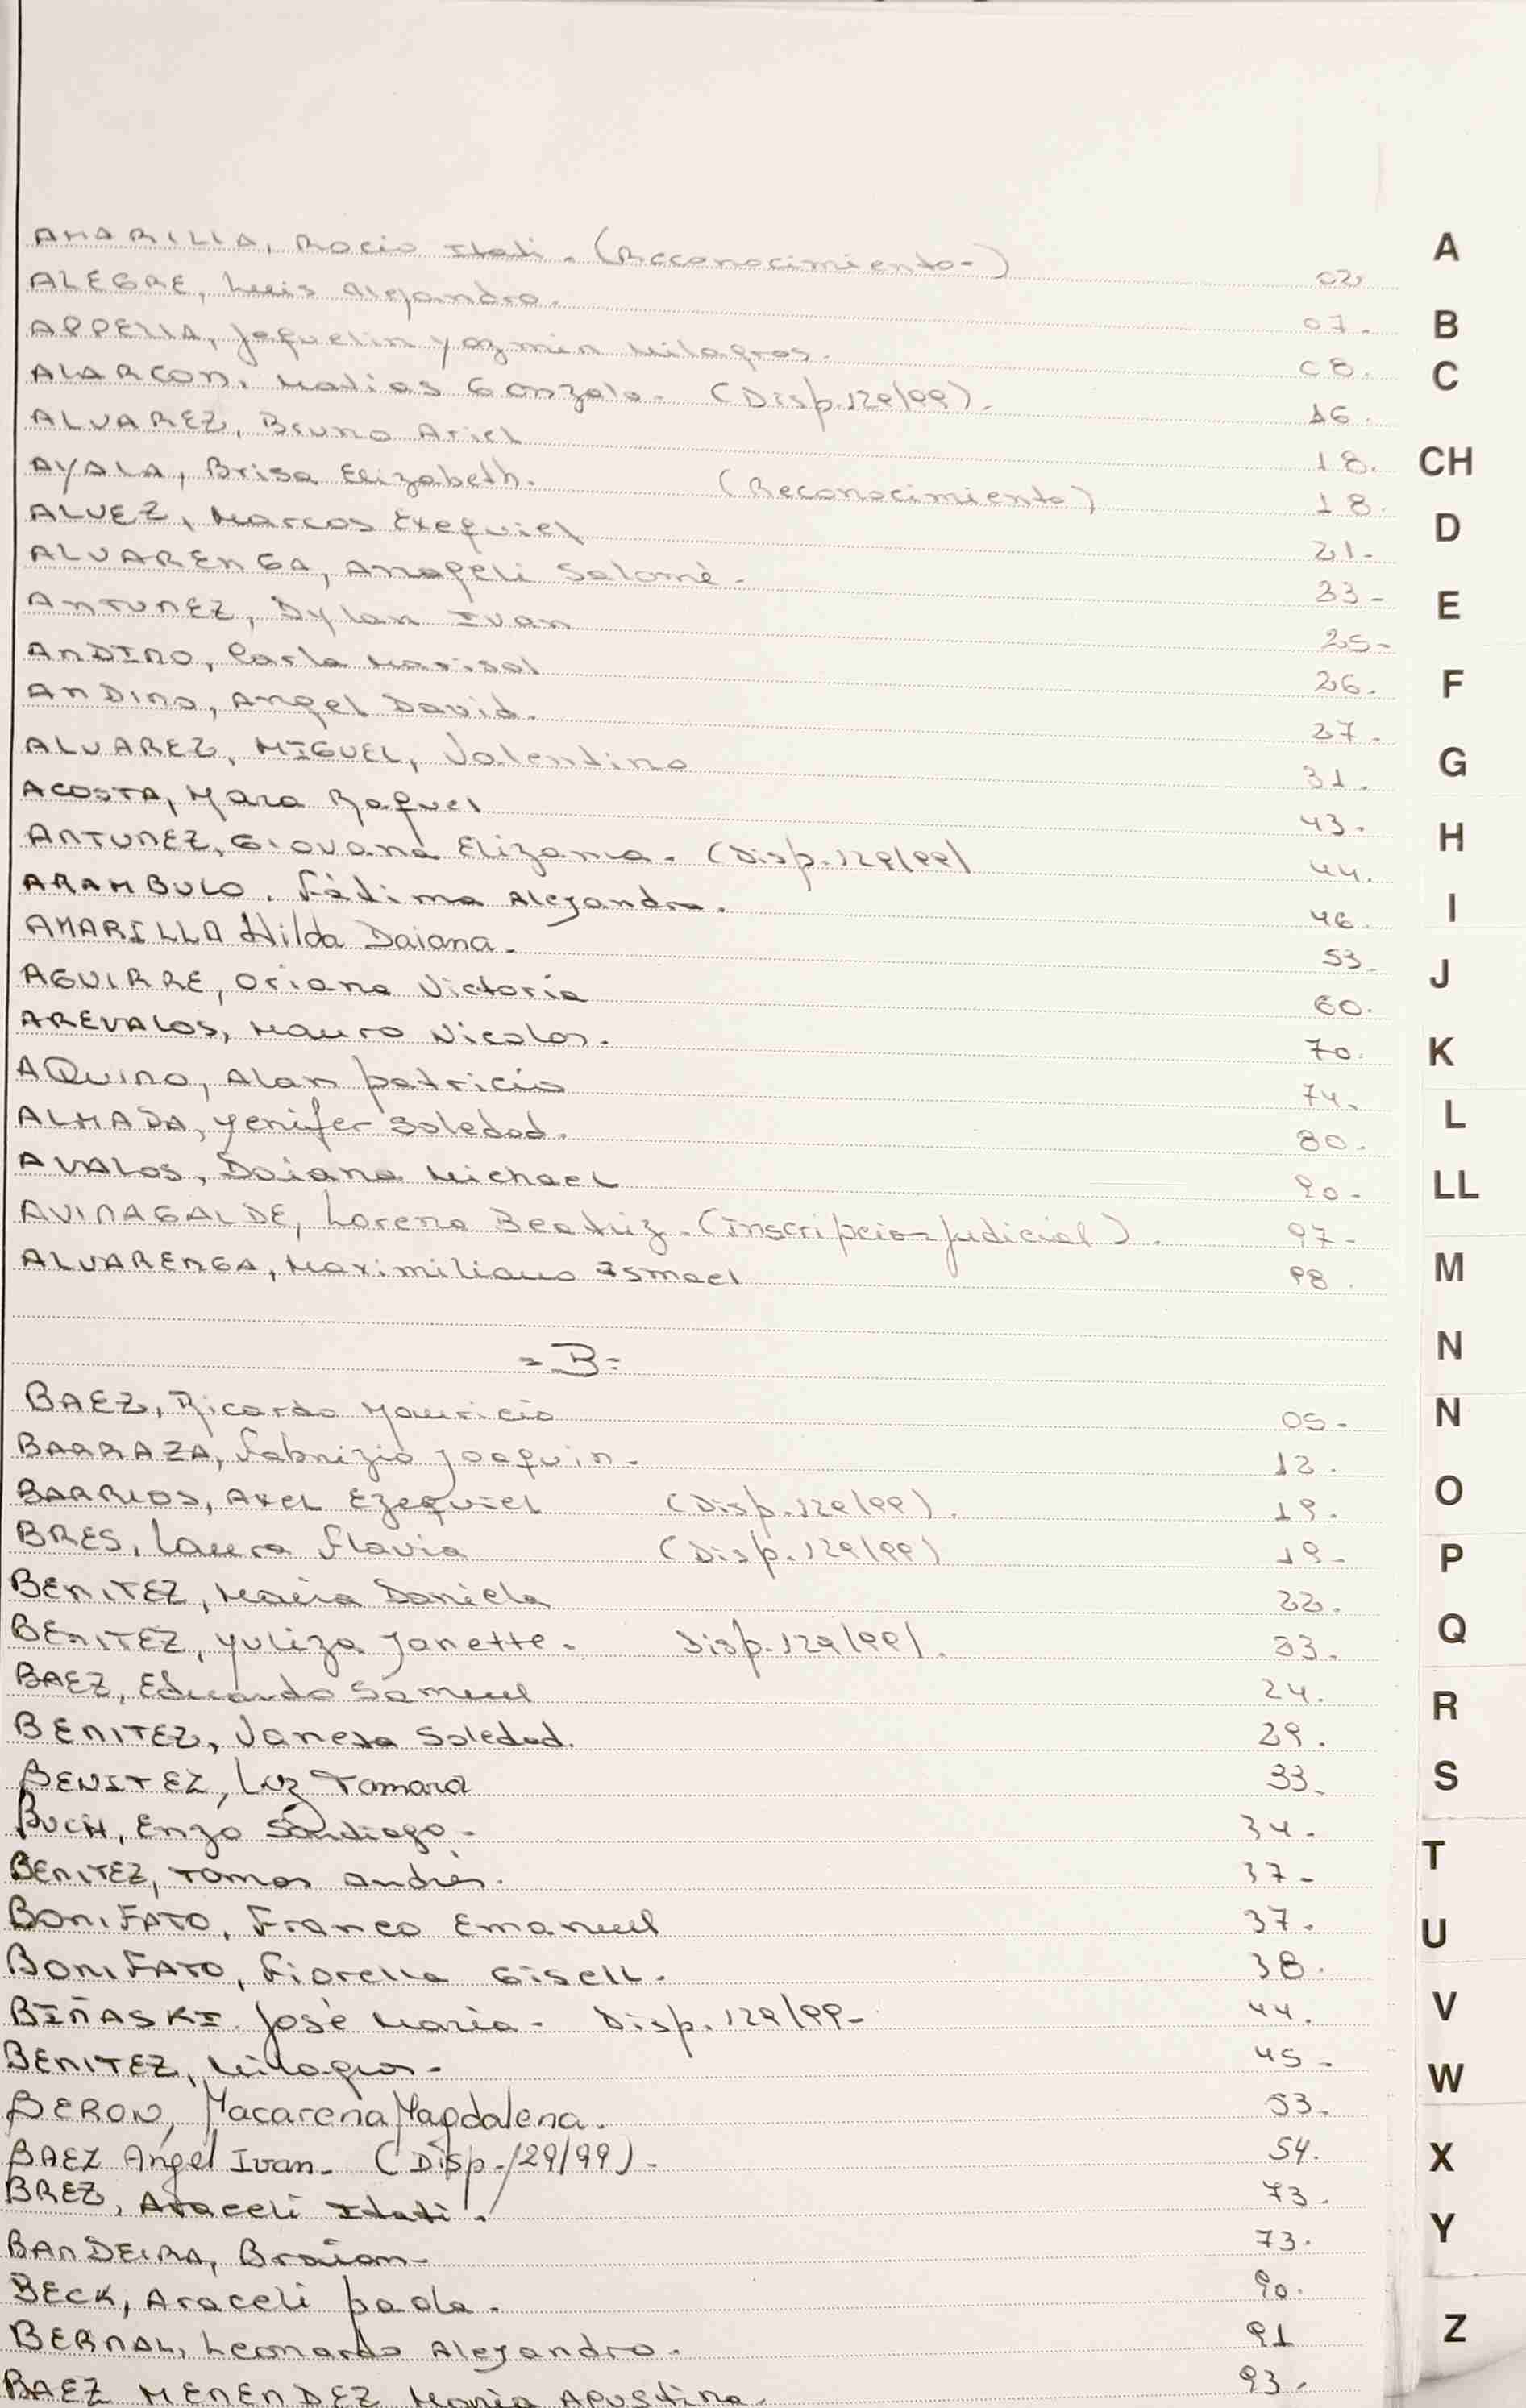 AMARILLA, Rocio Itati. (Reconocimiento-) 02
ALEGRE, Luis Alejandro. 07.
APPELLA, Jaquelin Yazmin Milagros. 08.
ALARCON, Matias Gonzalo. (Disp. 129/99). 16.
ALVAREZ, Bruno Ariel 18.
AYALA, Brisa Elizabeth. (Reconocimiento) 18.
ALVEZ, Marcos Exequiel 21-
ALVARENGA, Anageli Salomé. 23-
ANTUNEZ, Dylan Ivan 25-
ANDINO, Carla Marisol 26.
ANDINO, Angel David. 27.
ALVAREZ, MIGUEL, Valentino 31.
ACOSTA, Mara Raquel 43.
ANTUNEZ, Giovana Elizama. (Disp. 129/99) 44.
ARAMBULO. Fátima Alejandra. 46.
AMARILLA Hilda Daiana. 53.
AGUIRRE, Oriana Victoria 60.
AREVALOS, Mauro Nicolas. 70.
AQuino, Alan patricio 74.
ALMADA, Yenifer Soledad. 80.
AVALOS, Daiana Michael 90.
AVINAGALDE, Lorena Beatriz. (Inscripcion Judicial). 97.
ALVARENGA, Maximiliano Ismael 98.
=B=
BAEZ, Ricardo Mauricio 05.
BARRAZA, Fabrizio Joaquin. 12.
BARRIOS, Axel Ezequiel (Disp. 129/99). 19.
BRES, Laura Flavia (Disp. 129/99) 19-
BENITEZ, Maria Daniela 22.
BENITEZ, Yuliza Janette. Disp. 129/99). 23.
BAEZ, Eduardo Samuel 24.
BENITEZ, Vanesa Soledad. 29.
BENITEZ, Luz Tamara 33.
BUCH, Enzo Santiago. 34.
BENITEZ, Tomas Andrés. 37-
BONIFATO, Franco Emanuel 37.
BONIFATO, Fiorella Gisell. 38.
BIÑASKI. José María. Disp. 129/99- 44.
BENITEZ, Milagros. 45-
BERON, Macarena Magdalena. 53.
BAEZ Angel Ivan. (Disp. 129/99). 54.
BREZ, Araceli Itati. 73.
BANDEIRA, Braian- 73.
BECK, Araceli paola. 90.
BERNAL, Leonardo Alejandro. 91
BAEZ MENENDEZ María Agustina. 93.
A
B
C
CH
D
E
F
G
H
I
J
K
L
LL
M
N
N
O
P
Q
R
S
T
U
V
W
X
Y
Z